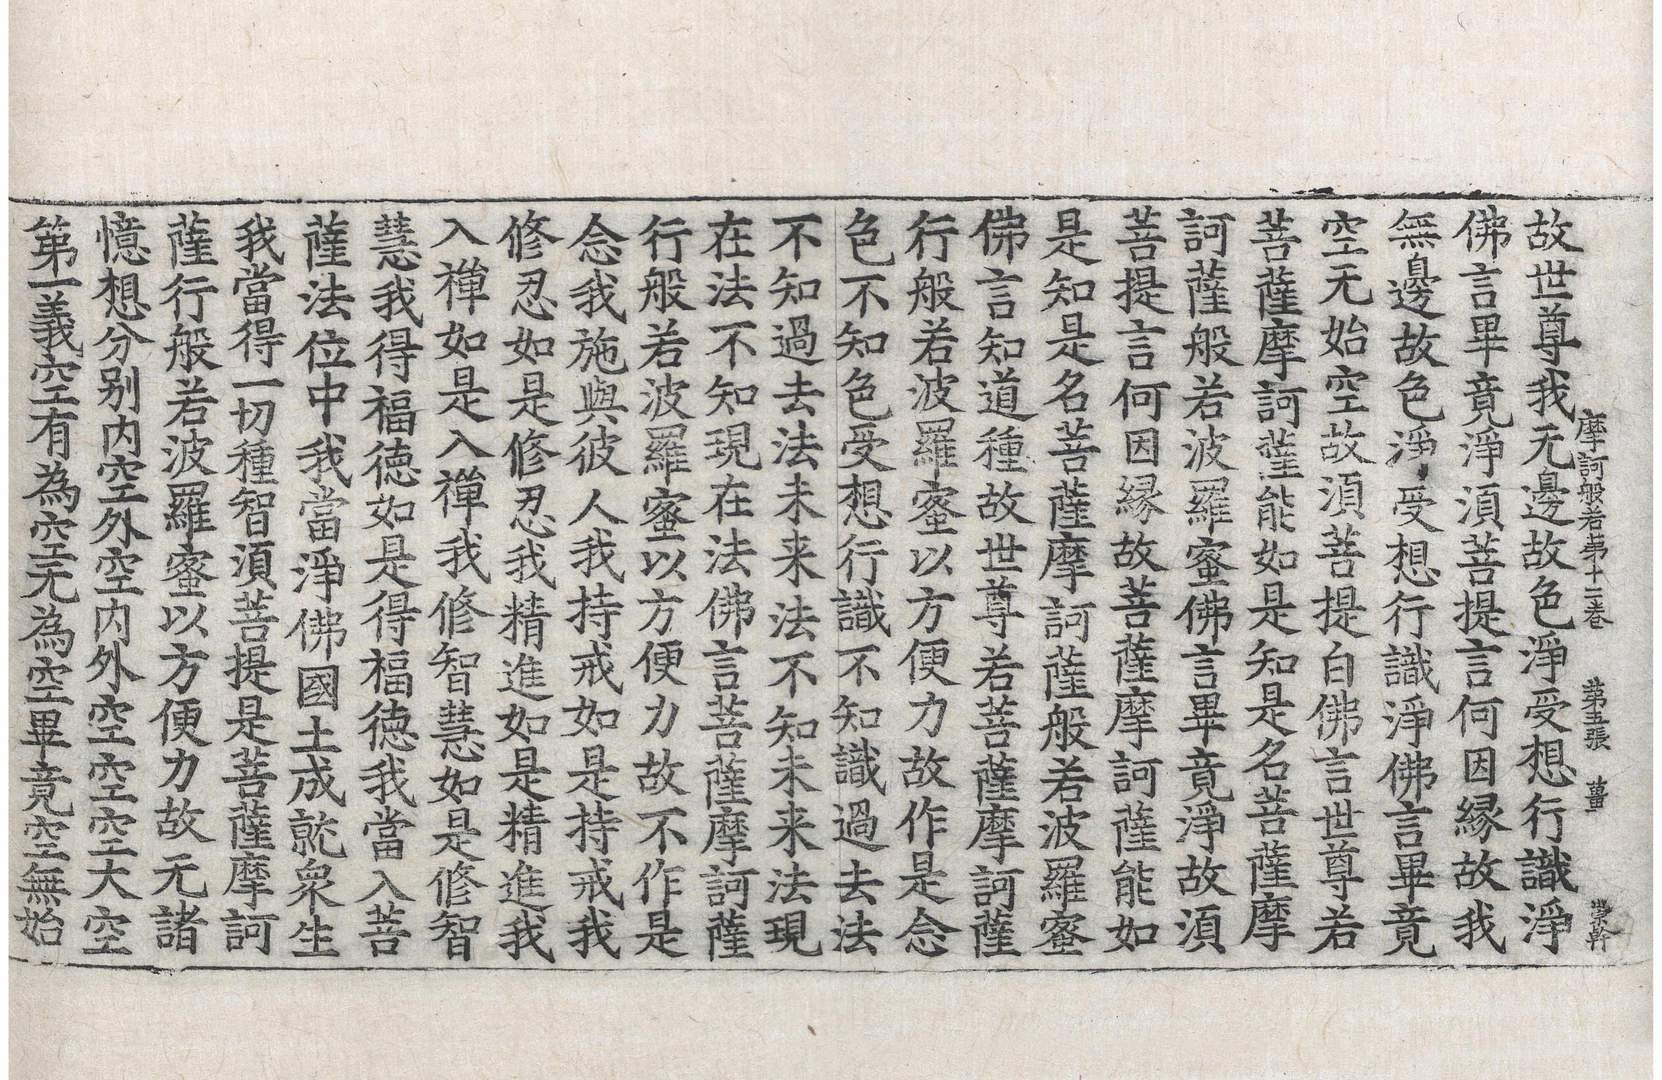 摩訶般若第十二卷 第五張 薑
故世尊我无邊故色淨受想行識淨
佛言畢竟淨湏菩提言何因縁故我
無邊故色淨受想行識淨佛言畢竟
空无始空故湏菩提白佛言世尊若
菩薩摩訶薩能如是知是名菩薩摩
訶薩般若波羅蜜佛言畢竟淨故湏
菩提言何因縁故菩薩摩訶薩能如
是知是名菩薩摩訶薩般若波羅蜜
佛言知道種故世尊若菩薩摩訶薩
行般若波羅蜜以方便力故作是念
色不知色受想行識不知識過去法
不知過去法未来法不知未来法現
在法不知現在法佛言菩薩摩訶薩
行般若波羅蜜以方便力故不作是
念我施與彼人我持戒如是持戒我
修忍如是修忍我精進如是精進我
入禪如是入禪我修智慧如是修智
慧我得福德如是得福德我當入菩
薩法位中我當淨佛國土成就衆生
我當得一切種智湏菩提是菩薩摩訶
薩行般若波羅蜜以方便力故无諸
憶想分别内空外空内外空空空大空
第一義空有為空无為空畢竟空無始